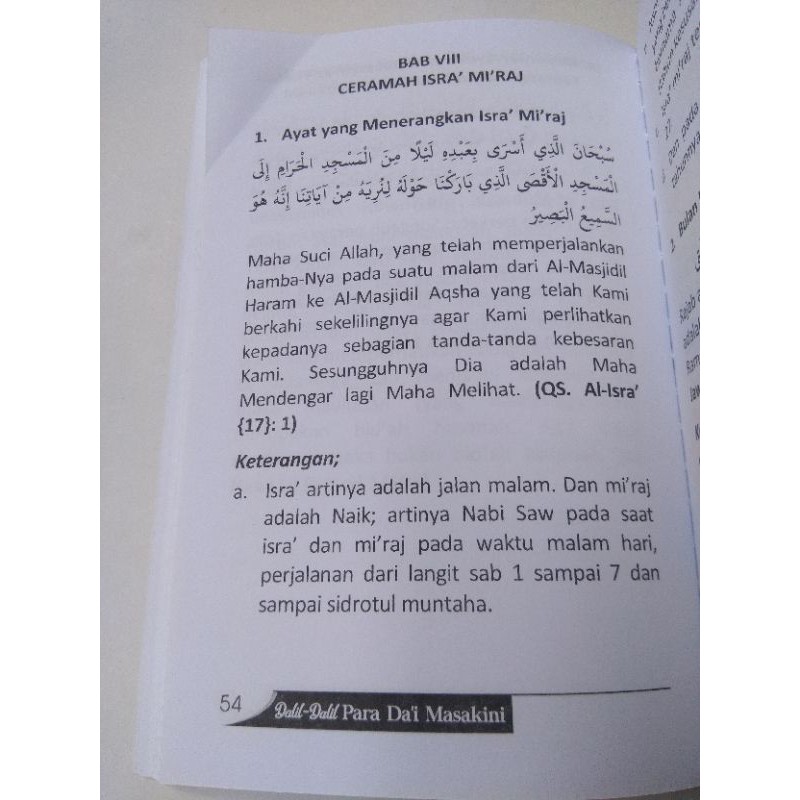 BAB VIII
CERAMAH ISRA’ MI’RAJ
1. Ayat yang Menerangkan Isra’ Mi’raj
سُبْحَانَ الَّذِي أَسْرَى بِعَبْدِهِ لَيْلًا مِنَ الْمَسْجِدِ الْحَرَامِ إِلَى
الْمَسْجِدِ الْأَقْصَى الَّذِي بَارَكْنَا حَوْلَهُ لِنُرِيَهُ مِنْ آيَاتِنَا إِنَّهُ هُوَ
السَّمِيعُ الْبَصِيرُ
Maha Suci Allah, yang telah memperjalankan
hamba-Nya pada suatu malam dari Al-Masjidil
Haram ke Al-Masjidil Aqsha yang telah Kami
berkahi sekelilingnya agar Kami perlihatkan
kepadanya sebagian tanda-tanda kebesaran
Kami. Sesungguhnya Dia adalah Maha
Mendengar lagi Maha Melihat. (QS. Al-Isra’
{17}: 1)
Keterangan;
a. Isra’ artinya adalah jalan malam. Dan mi’raj
adalah Naik; artinya Nabi Saw pada saat
isra’ dan mi’raj pada waktu malam hari,
perjalanan dari langit sab 1 sampai 7 dan
sampai sidrotul muntaha.
54 Dalil-Dalil Para Da'i Masakini
2. Bulan